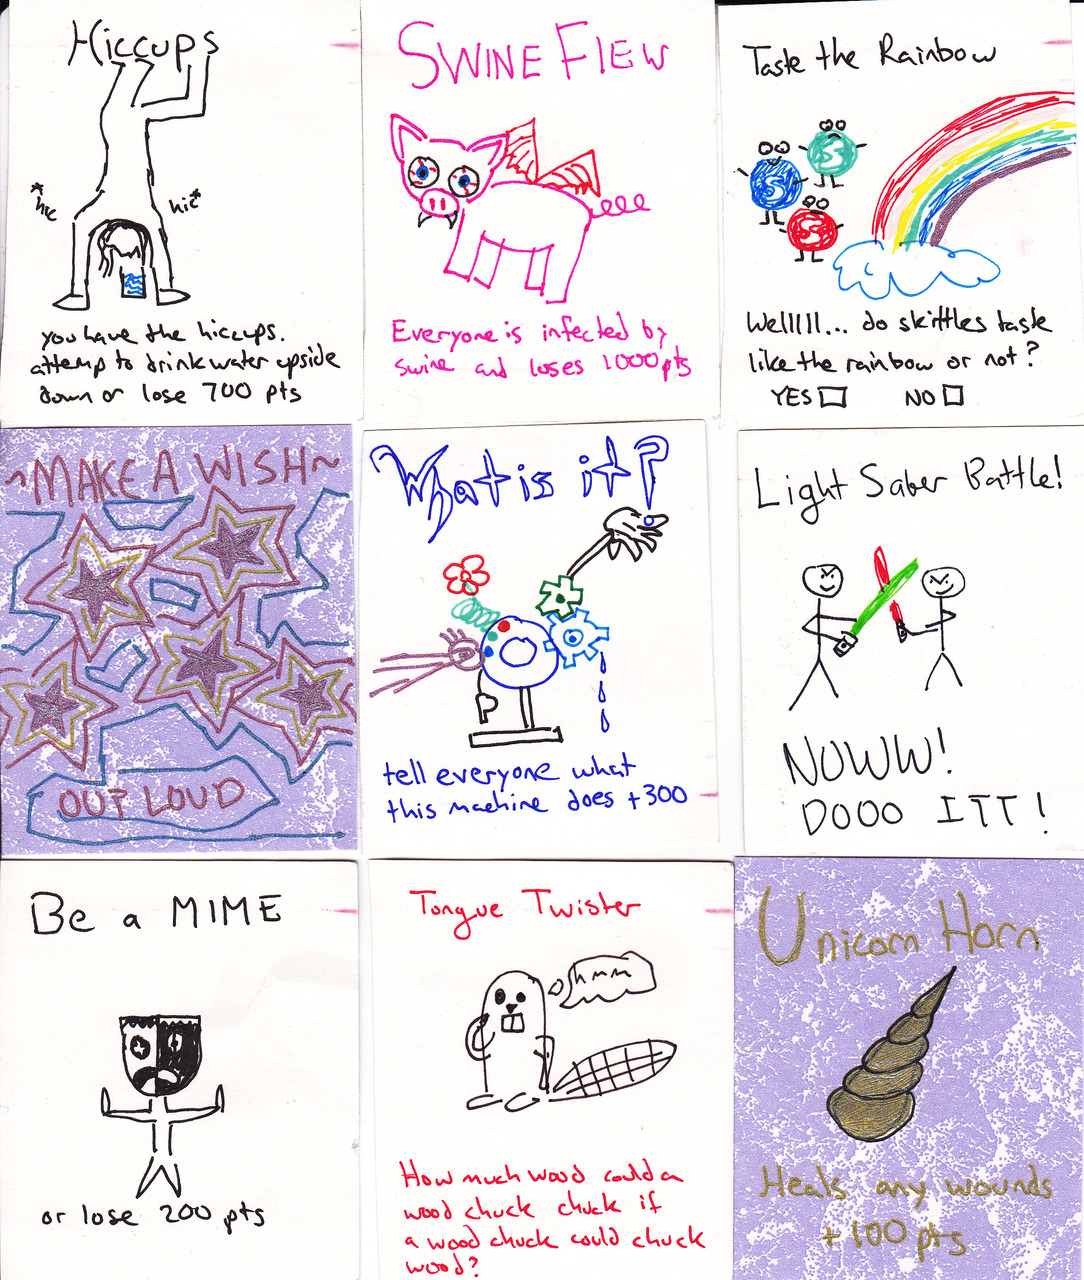 Hiccups
*hic
hic*
you have the hiccups.
attemp to drink water upside
down or lose 700 pts
SWINE FLEW
Everyone is infected by
swine and loses 1000 pts
Taste the Rainbow
S
S
S
Wellllll... do skittles taste
like the rainbow or not?
YES NO
~MAKE A WISH~
OUT LOUD
What is it?
tell everyone what
this machine does +300
Light Saber Battle!
NOWW!
DOOO ITT!
Be a MIME
or lose 200 pts
Tongue Twister
hmm
How much wood could a
wood chuck chuck if
a wood chuck could chuck
wood?
Unicorn Horn
Heals any wounds
+100 pts